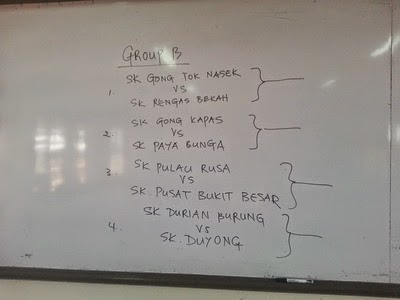 GROUP B
SK GONG TOK NASEK
1. VS
SK RENGAS BEKAH
SK GONG KAPAS
2. VS
SK PAYA BUNGA
SK PULAU RUSA
3 VS
SK. PUSAT BUKIT BESAR
SK DURIAN BURUNG
4. VS
SK. DUYONG